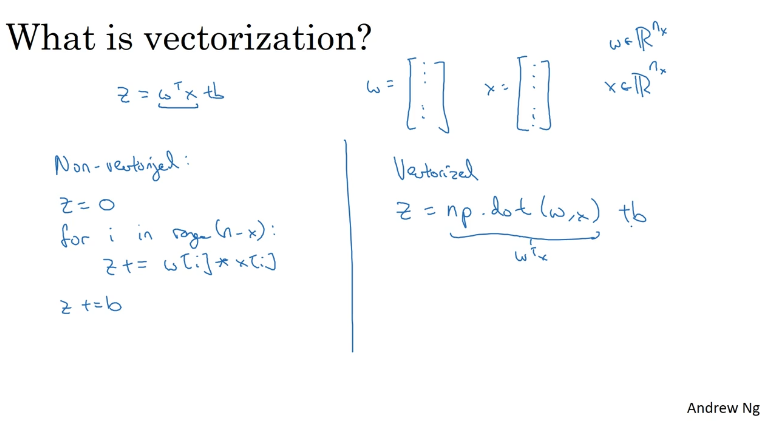 What is vectorization?
z = wᵀx + b
w = [⋮] x = [⋮]
w ∈ ℝⁿˣ
x ∈ ℝⁿˣ
Non-vectorized:
z = 0
for i in range(n-x):
z += w[i] * x[i]
z += b
Vectorized
z = np.dot(w,x) + b
wᵀx
Andrew Ng